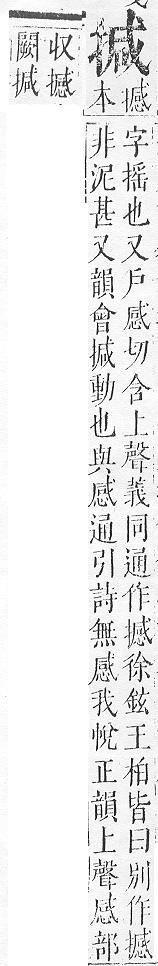 㨔撼本
字搖也又戶感切含上聲義同通作撼徐鉉王柏皆曰別作撼
非泥甚又韻會㨔動也與感通引詩無感我帨正韻上聲感部
收撼
闕㨔